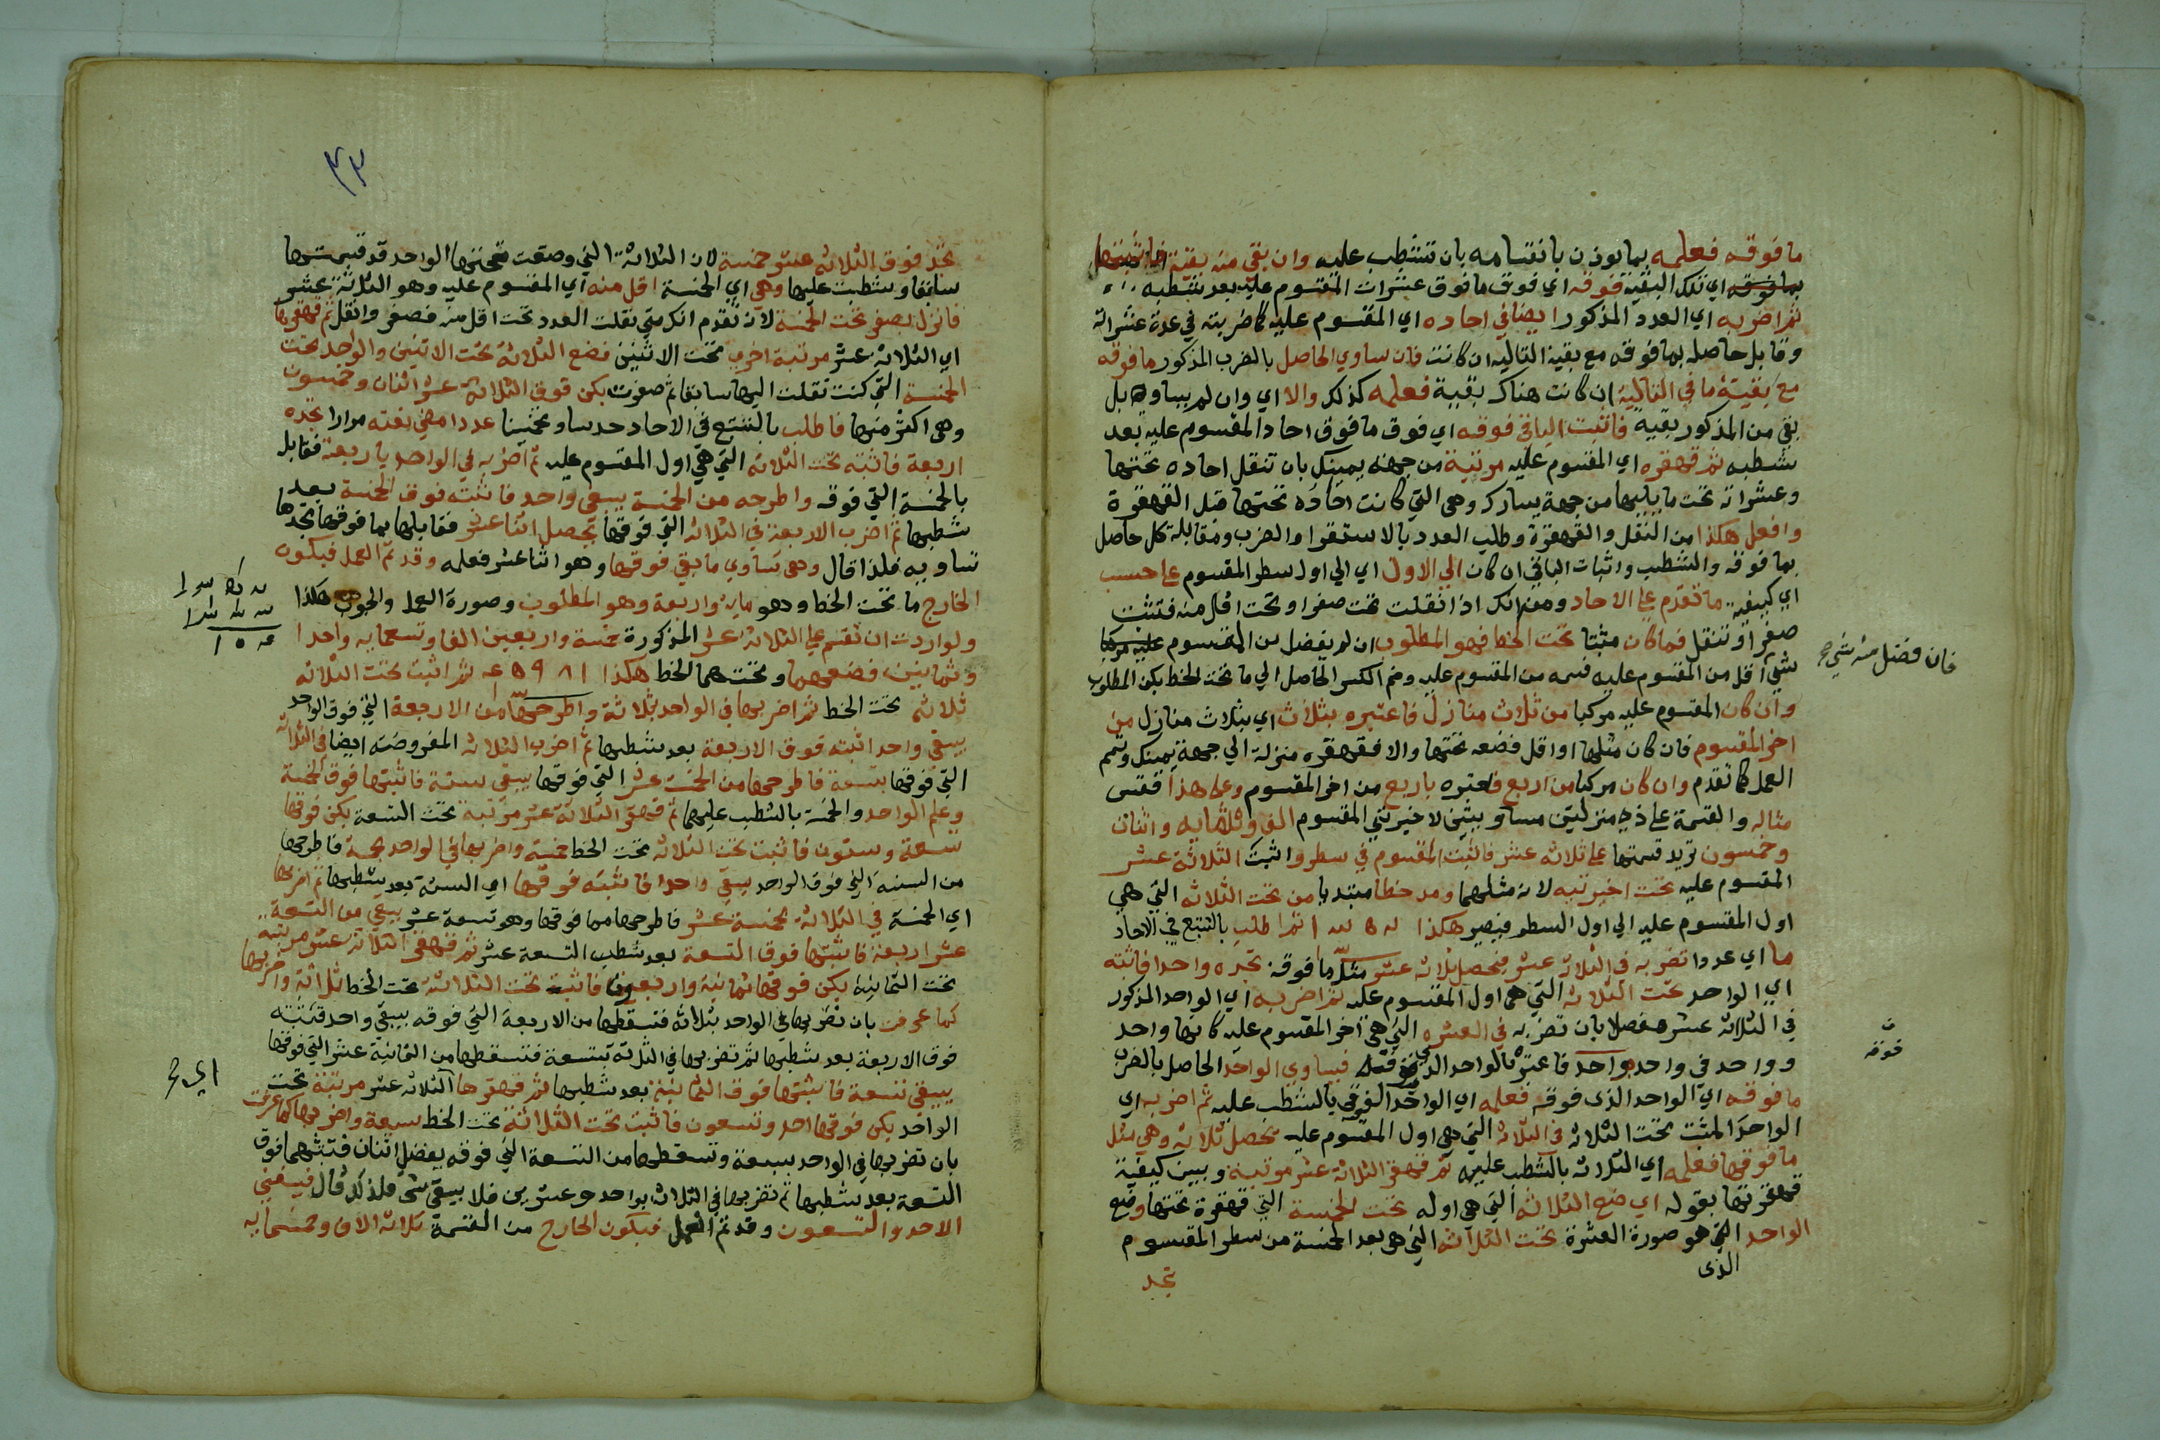 ما فوقه فعلمه بما يوذن بانقسامه بان تشطب عليه وان بقي منه بقية فاثبتها
اي تلك البقية فوقه اي فوق ما فوق عشرات المقسوم عليه بعد شطبه
ثم اضربه اي العدد المذكور ايضا في احاده اي المقسوم عليه كاضربته في عدة عشراته
وقابل حاصله بما فوقه مع بقية التاليه ان كانت فان ساوي الحاصل بالضرب المذكور ما فوقه
مع بقية ما في التالية ان كانت هناك بقية فعلمه كذلك والا اي وان لم يساويه بل
بقي من المذكور بقية فاثبت الباقي فوقه اي فوق ما فوق احاد المقسوم عليه بعد
شطبه ثم قهقره اي المقسوم عليه مرتبة من جهة يمينك بان تنقل احاده تحتها
وعشراته تحت ما يليها من جهة يسارك وهي التي كانت احاده تحتها قبل القهقرة
وافعل هكذا من النقل والقهقرة وطلب العدد بالاستقرا والضرب ومقابلة كل حاصل
بما فوقه والشطب واثبات الباقي ان كان الي الاول اي الي اول سطر المقسوم علي حسب
اي كيفية ما تقدم علي الاحاد ومن انك اذا نقلت تحت صفر او تحت اقل منه فتثبت
صفرا وتنقل فما كان مثبتا تحت الخط فهو المطلوب ان لم يفضل من المقسوم
شي اقل من المقسوم عليه فسمه من المقسوم عليه وضم الكسر الحاصل الي ما تحت الخط يكن المطلوب
فان فضل منه شي
وان كان المقسوم عليه مركبا من ثلاث منازل فاعتبره بثلاث اي بثلاث منازل من
اخر المقسوم فان كان مثلها او اقل فضعه تحتها والا فقهقره منزلة الي جهة يمينك وتمم
العمل كما تقدم وان كان مركبا من اربع فاعتبره باربع من اخر المقسوم وعلي هذا فقس
مثاله والقسمة علي ذي منزلتين مساو يبتين لاخيرتي المقسوم الف وثلاثمايه واثنان
وخمسون تريد قسمتها علي ثلاثه عشر فاثبت المقسوم في سطر واثبت الثلاثة عشر
المقسوم عليه تحت اخيرتيه لانه مثلهما ومد خطا مبتديا من تحت الثلاثه التي هي
اول المقسوم عليه الي اول السطر فيصير هكذا ثم اطلب بالتتبع في الاحاد
ما اي عددا تضربه في الثلاثه عشر فيحصل ثلاثه عشر مثل ما فوقه تجده واحدا فاثبته
اي الواحد تحت الثلاثه التي هي اول المقسوم عليه ثم اضربه اي الواحد المذكور
في الثلاثه عشر مفصلا بان تضربه في العشره التي هي اخر المقسوم عليه كانها واحد
وواحد في واحد بواحد فاعتبره بالواحد الذي فوقه فيساوي الواحد الحاصل بالضرب
فوقه
ما فوقه اي الواحد الذي فوقه فعلمه اي الواحد الفوقي بالشطب عليه ثم اضربه اي
الواحد المثبت تحت الثلاثه في الثلاثه التي هي اول المقسوم عليه يحصل ثلاثه وهي مثل
ما فوقها فعلمه اي الثلاثه بالشطب عليه ثم قهقر الثلاثه عشر مرتبة وبين كيفية
قهقرتها بقوله اي ضع الثلاثه التي هي اوله تحت الخمسة التي قهقرة تحتها وضع
الواحد الذي هو صورة العشرة تحت الثلاثه التي هي بعد الخمسة من سطر المقسوم
الذي
تجد
٣٣
تجد فوق الثلاثه عشر خمسة لان الثلاثة التي وضعت تحتها الواحد قد قسمتها
سابقا وشطبت عليها وهي اي الخمسة اقل منه اي المقسوم عليه وهو الثلاثة عشر
فانزل بصفر تحت الخمسة لان تقدم انك متي نقلت العدد تحت اقل منه فصفر وانقل ثم قهقرها
اي الثلاثه عشر مرتبة اخري تحت الاثنين فضع الثلاثة تحت الاثنين والواحد تحت
الخمسة التي كنت نقلت اليها سابقا ثم صفرت يكن فوق الثلاثة عشر اثنان وخمسون
وهي اكثر منها فاطلب بالتتبع في الاحاد عددا مهي بعته مرارا تجده
اربعة فاثبته تحت الثلاثه التي هي اول المقسوم عليه ثم اضربه في الواحد باربعة فقابل
بالخمسة التي فوقه واطرحه من الخمسة يبقي واحد فاثبته فوق الخمسة بعد
شطبها ثم اضرب الاربعة في الثلاثه التي فوقها تحصل اثنا عشر فقابلها بما فوقها تجدها
تساويه فلذا قال وهي تساوي ما بقي فوقها وهو اثنا عشر فعلمه وقد تم العمل فيكون
الخارج ما تحت الخط وهو مايه واربعة وهو المطلوب وصورة العمل والجواب هكذا
ولو اردت ان تقسم علي الثلاثه عشر المذكورة خمسة واربعين الفا وتسعمايه واحدا
وثمانين فضعهما وتحتهما الخط هكذا ثم اثبت تحت الثلاثه
ثلاثه تحت الخط ثم اضربها في الواحد بثلاثة واطرحها من الاربعة التي فوق الواحد
يبقي واحد اثبته فوق الاربعة بعد شطبها ثم اضرب الثلاثه المفروضه ايضا في الثلاثه
التي فوقها بتسعة فاطرحها من الخمسة عشر التي فوقها يبقي ستة فاثبتها فوق الخمسة
وعلم الواحد والخمسة بالشطب عليهما ثم قهقر الثلاثة عشر مرتبة تحت التسعة يكن فوقها
تسعة وستون فاثبت تحت الثلاثه تحت الخط خمسة واضربها في الواحد بخمسة فاطرحها
من الستة التي فوق الواحد يبقي واحد فاثبته فوقها اي الستة بعد شطبها ثم اضربها
اي الخمسة في الثلاثة بخمسة عشر فاطرحها مما فوقها وهو تسعة عشر يبقي من التسعة
عشر اربعة فاثبتها فوق التسعة بعد شطب التسعة عشر ثم قهقر الثلاثة عشر مرتبه
تحت الثمانيه يكن فوقها ثمانية واربعون فاثبت تحت الثلاثة تحت الخط ثلاثة واضربها
كما عرفت بان تضربها في الواحد بثلاثه فتسقطها من الاربعة التي فوقه يبقي واحد فتثبته
فوق الاربعة بعد شطبها ثم تضربها في الثلاثه بتسعة فتسقطها من الثمانية عشر التي فوقها
يبقي تسعة فاثبتها فوق الثمانية بعد شطبها ثم قهقرها الثلاثه عشر مرتبة تحت
الواحد يكن فوقها احد وتسعون فاثبت تحت الثلاثة تحت الخط سبعة واضربها كما عرفت
بان تضربها في الواحد بسبعة وتسقطها من التسعة التي فوقه يفضل اثنان فتثبتهما فوق
التسعة بعد شطبها ثم تضربها في الثلاثه بواحد وعشرين فلا يبقي شي فلذلك قال فيفني
الاحد والتسعون وقد تم العمل فيكون الخارج من القسمة ثلاثه الاف وخمسمايه